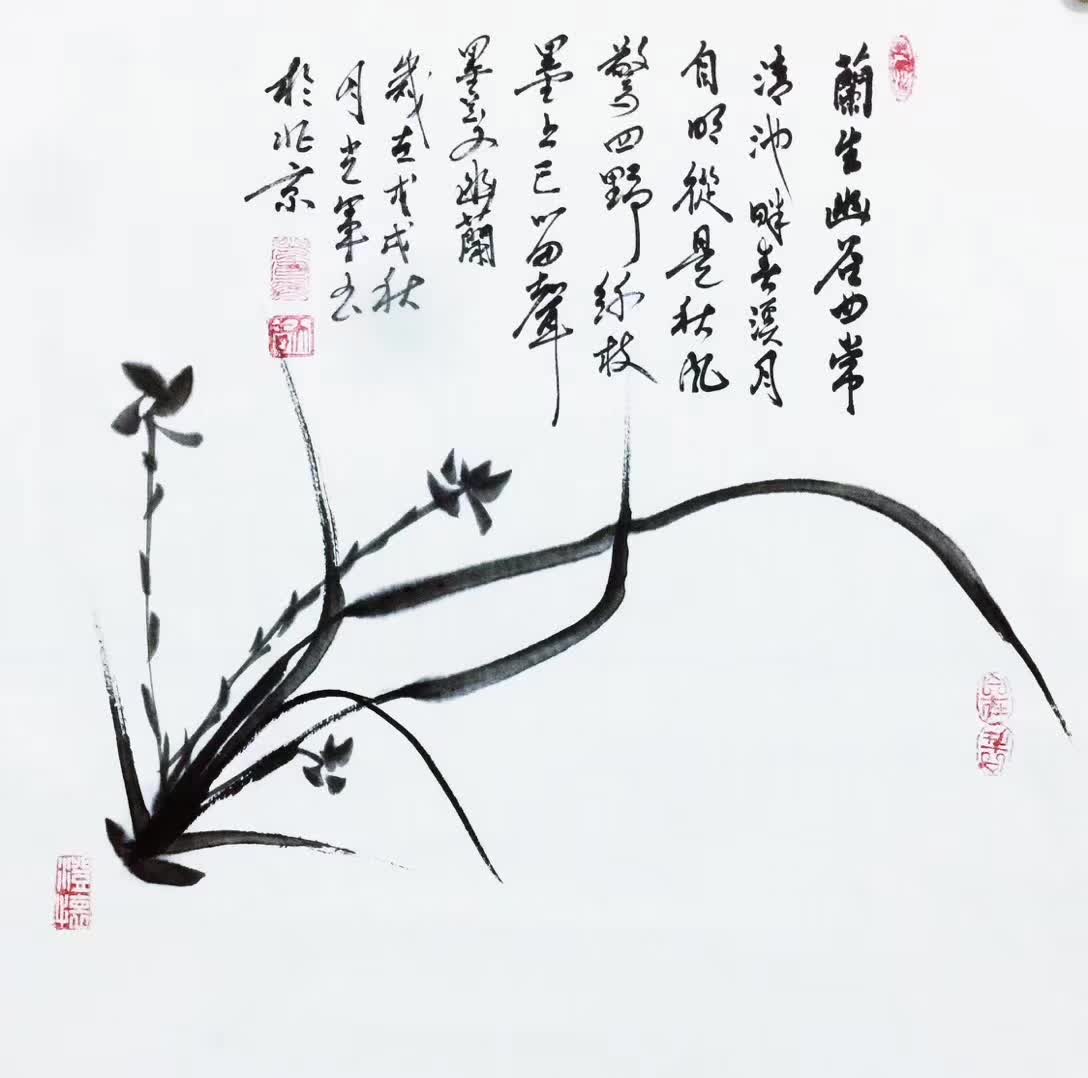 蘭生幽谷曲常
清池畔春溪月
自明從是秋風
驚四野 枝
墨上已留聲
墨 幽蘭
歲在戊戌秋
月光軍书
於北京
澄懷